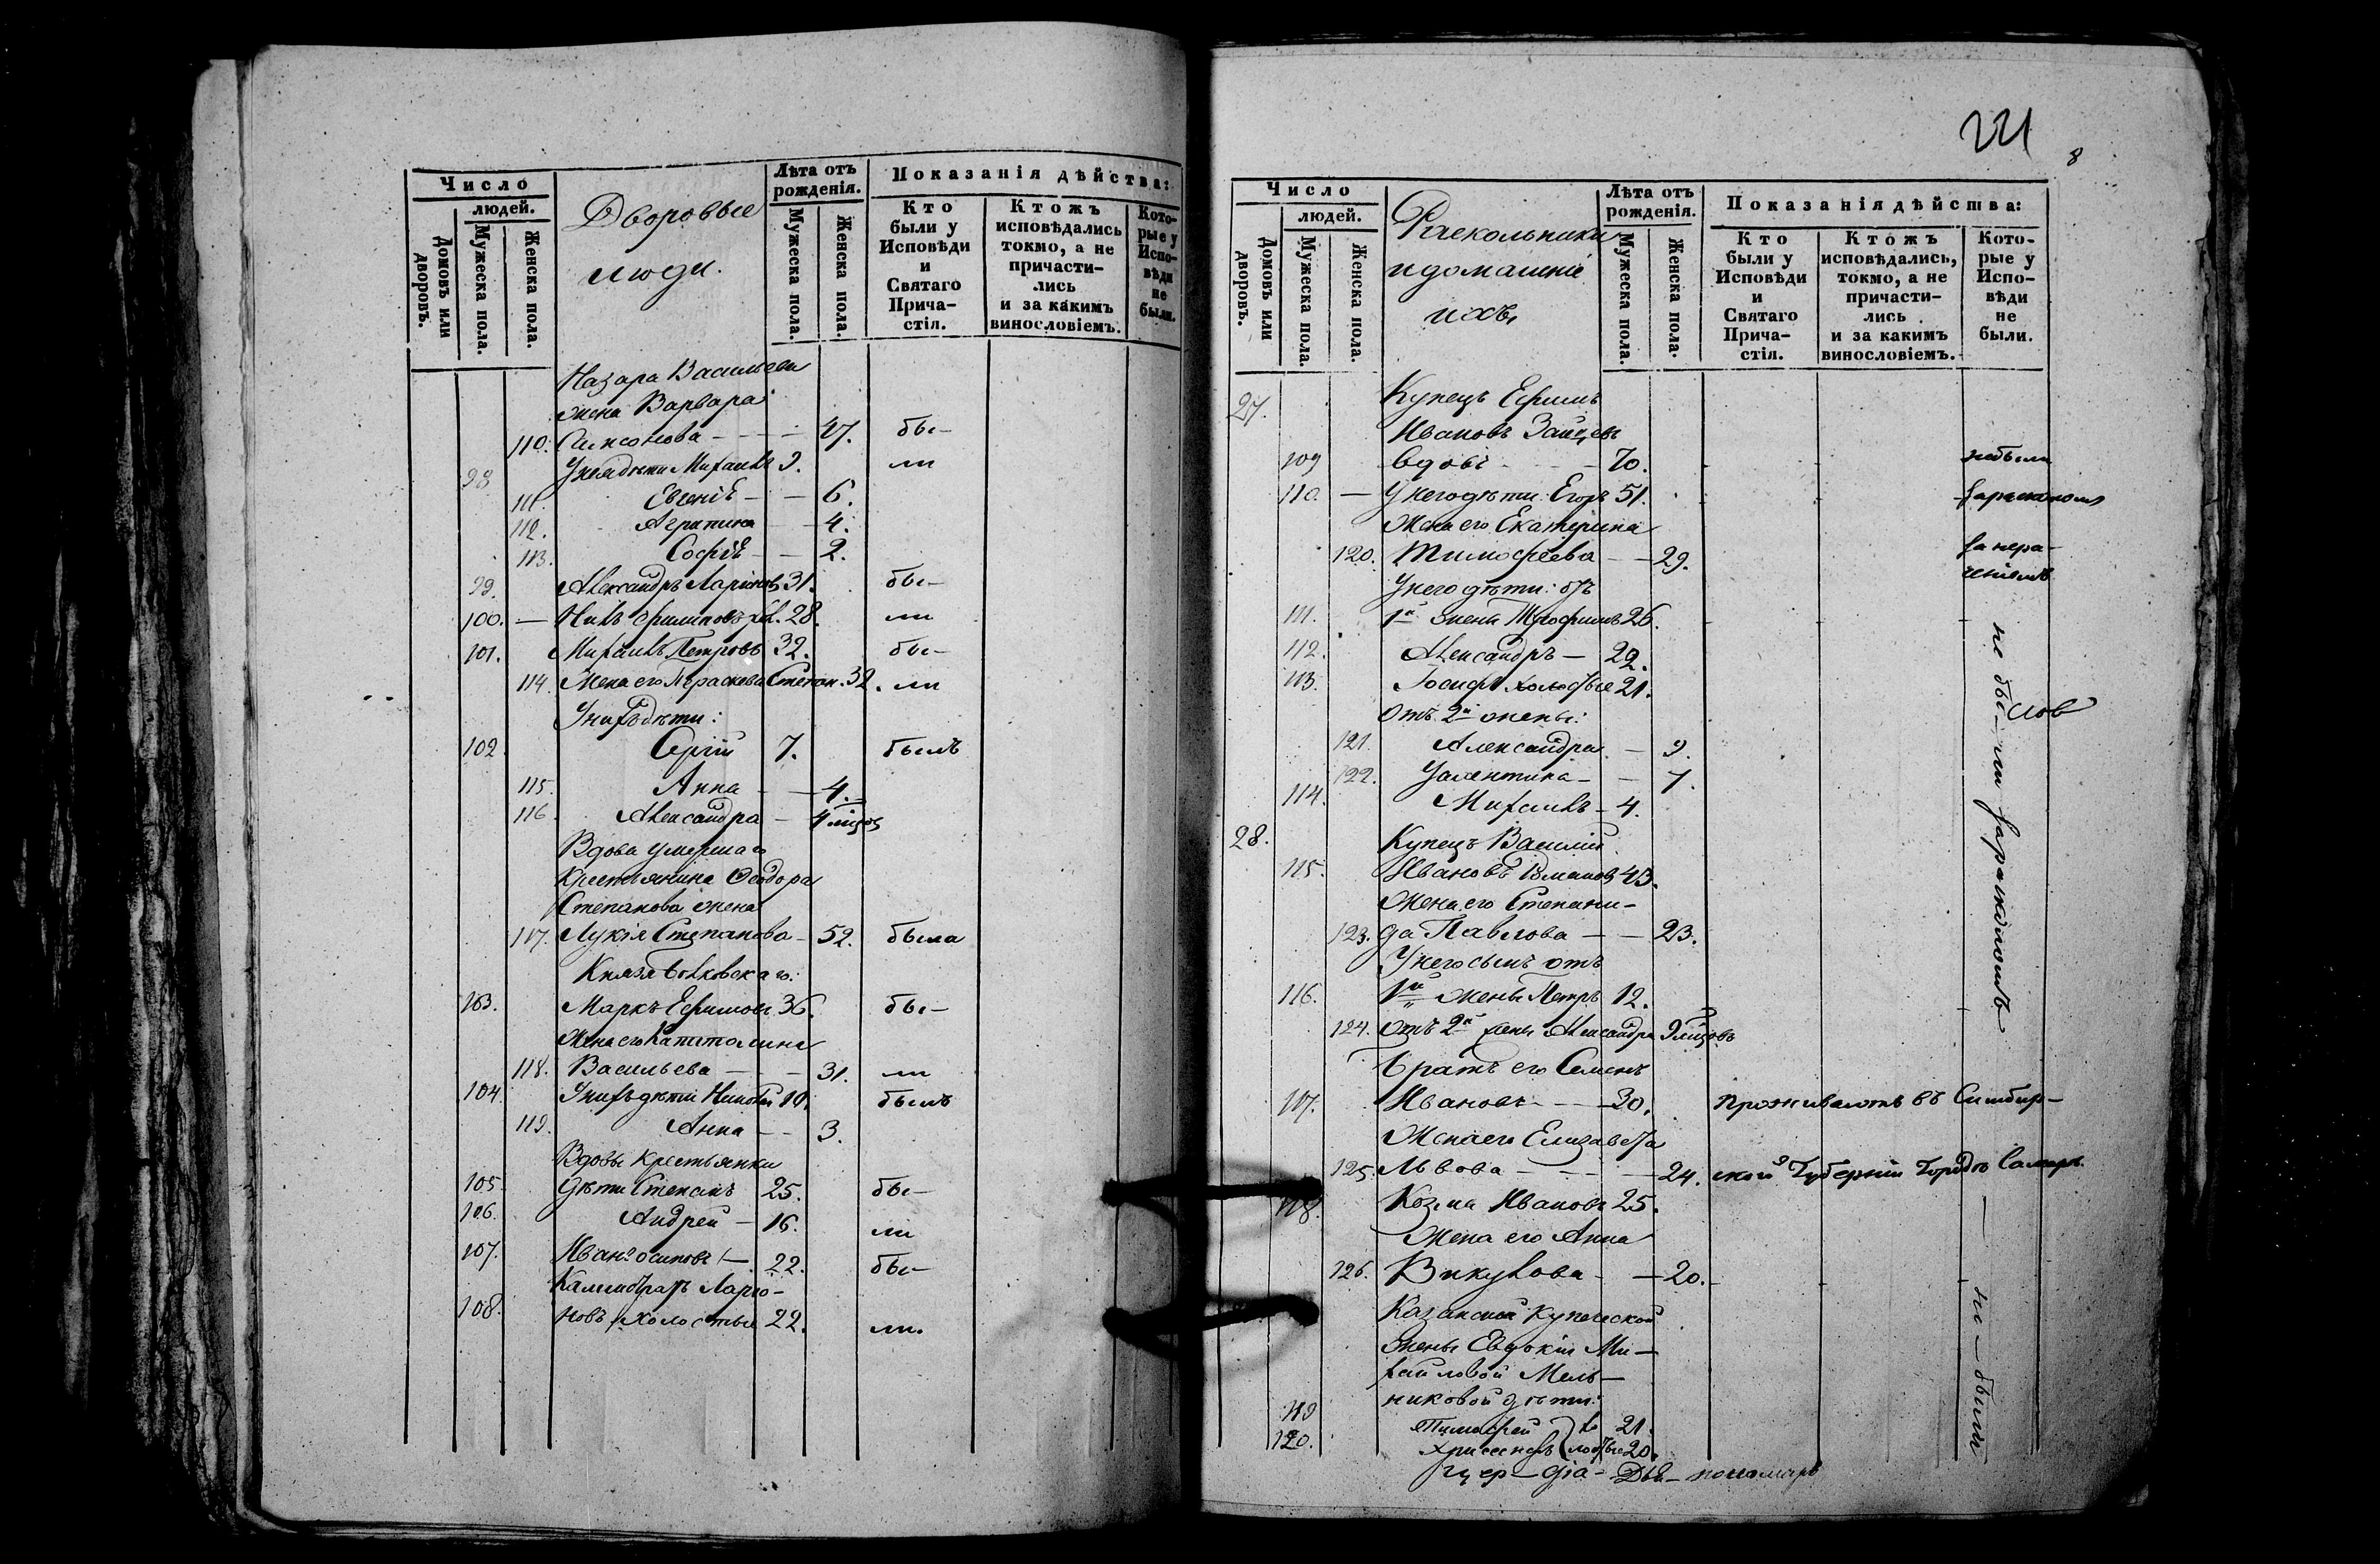 Число
людей.
Домовъ или дворовъ.
Мужеска пола.
Женска пола.
Дворовые
люди.
Лѣта отъ рожденія.
Мужеска пола.
Женска пола.
Показанія дѣйства:
Кто были у Исповѣди и Святаго Прича-стія.
Ктожъ исповѣдались токмо, а не причасти-лись и за какимъ винословіемъ.
Кото-рые у Испо-вѣди не были.
Назара Васильева
жена Варвара
110. Самсонова - - - 47. бы-
98 У нея дѣти Михаилъ 9. ли
111. Евгенія - - 6.
112. Агрипина - 4.
113. Софія - - 2.
99. Александръ Ларіоновъ 31. бы-
100. — Филиповъ 28. ли
101. Михаилъ Петровъ 32. бы-
114. Жена его Параскева Степан. 32. ли
У нихъ дѣти:
102. Сергій 7. былъ
115. Анна - - 4.
116 Александра - 4 мѣсяц
Вдова умершаго
Крестьянина Ѳеодора
Степанова жена
117. Лукія Степанова - 52. была
Князя Волховскаго:
103. Маркъ Ефимовъ 36. бы-
Жена его Капитолина
118. Васильева - - - 31. ли
104 У нихъ дѣти Николай 10. былъ
119. Анна - - 3.
Вдовы крестьянки
105 дѣти Степанъ 25. бы-
106. Андрей - 16. ли
107. Иванъ Осиповъ - 22. бы-
Ларіо-
108. новъ холостые 22. ли.
221
8
Число
людей.
Домовъ или дворовъ.
Мужеска пола.
Женска пола.
Раскольники
и домашніе
ихъ,
Лѣта отъ рожденія.
Мужеска пола.
Женска пола.
Показанія дѣйства:
Кто были у Исповѣди и Святаго Прича-стія.
Ктожъ исповѣдались, токмо, а не причасти-лись и за какимъ винословіемъ.
Кото-рые у Испо-вѣди не были.
27. Купецъ Ефимъ
Ивановъ Зайцевъ
109 вдовъ - - - 70. небыли
110. — У него дѣти: Егоръ 51. за расколомъ
Жена его Екатерина
120. Тимофеева - - 29. за нера-
У него дѣти: отъ
111. 1й жены Трофимъ 26.
112. Александръ — 22.
113. Іосифъ холостые 21.
Отъ 2й жены:
121. Александра - 9.
122. Уалентина - - 7.
114. Михаилъ - 4.
не бы-ли за расколомъ
28. Купецъ Василій
115. Ивановъ 43.
Жена его Степани-
123. да Павлова - - 23.
У него сынъ отъ
116. 1й жены Петръ 12.
124. Отъ 2й жены Александра 9 мѣсяцовъ
Братъ его Семенъ
117. Ивановъ - - - 30. проживаютъ въ Симбир-
Жена его Елизавета
125. Львова - - - - 24. ской Губерніи Городѣ Самарѣ
118. Козма Ивановъ 25.
Жена его Анна
126. Викулова - - 20.
Казанской Купеческой
жены Евдокіи Ми-
хайловой Мель-
никовой дѣти:
119 Тимофей хо 21.
120. лостые 20.
не-были
пономарь